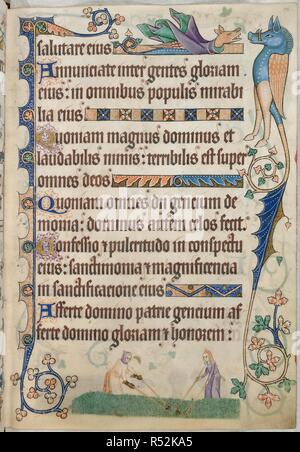 salutare eius
Annunciate inter gentes gloriam
eius: in omnibus populis mirabi
lia eius
Quoniam magnus dominus et
laudabilis nimis: terribilis est super
omnes deos
Quoniam omnes dii gencium de
monia: dominus autem celos fecit.
Confessio & pulcritudo in conspectu
eius: sanctimonia & magnificencia
in sanctificacione eius
Afferte domino patrie gencium af
ferte domino gloriam & honorem:
alamy
alamy
Image ID: R52KA5
www.alamy.com